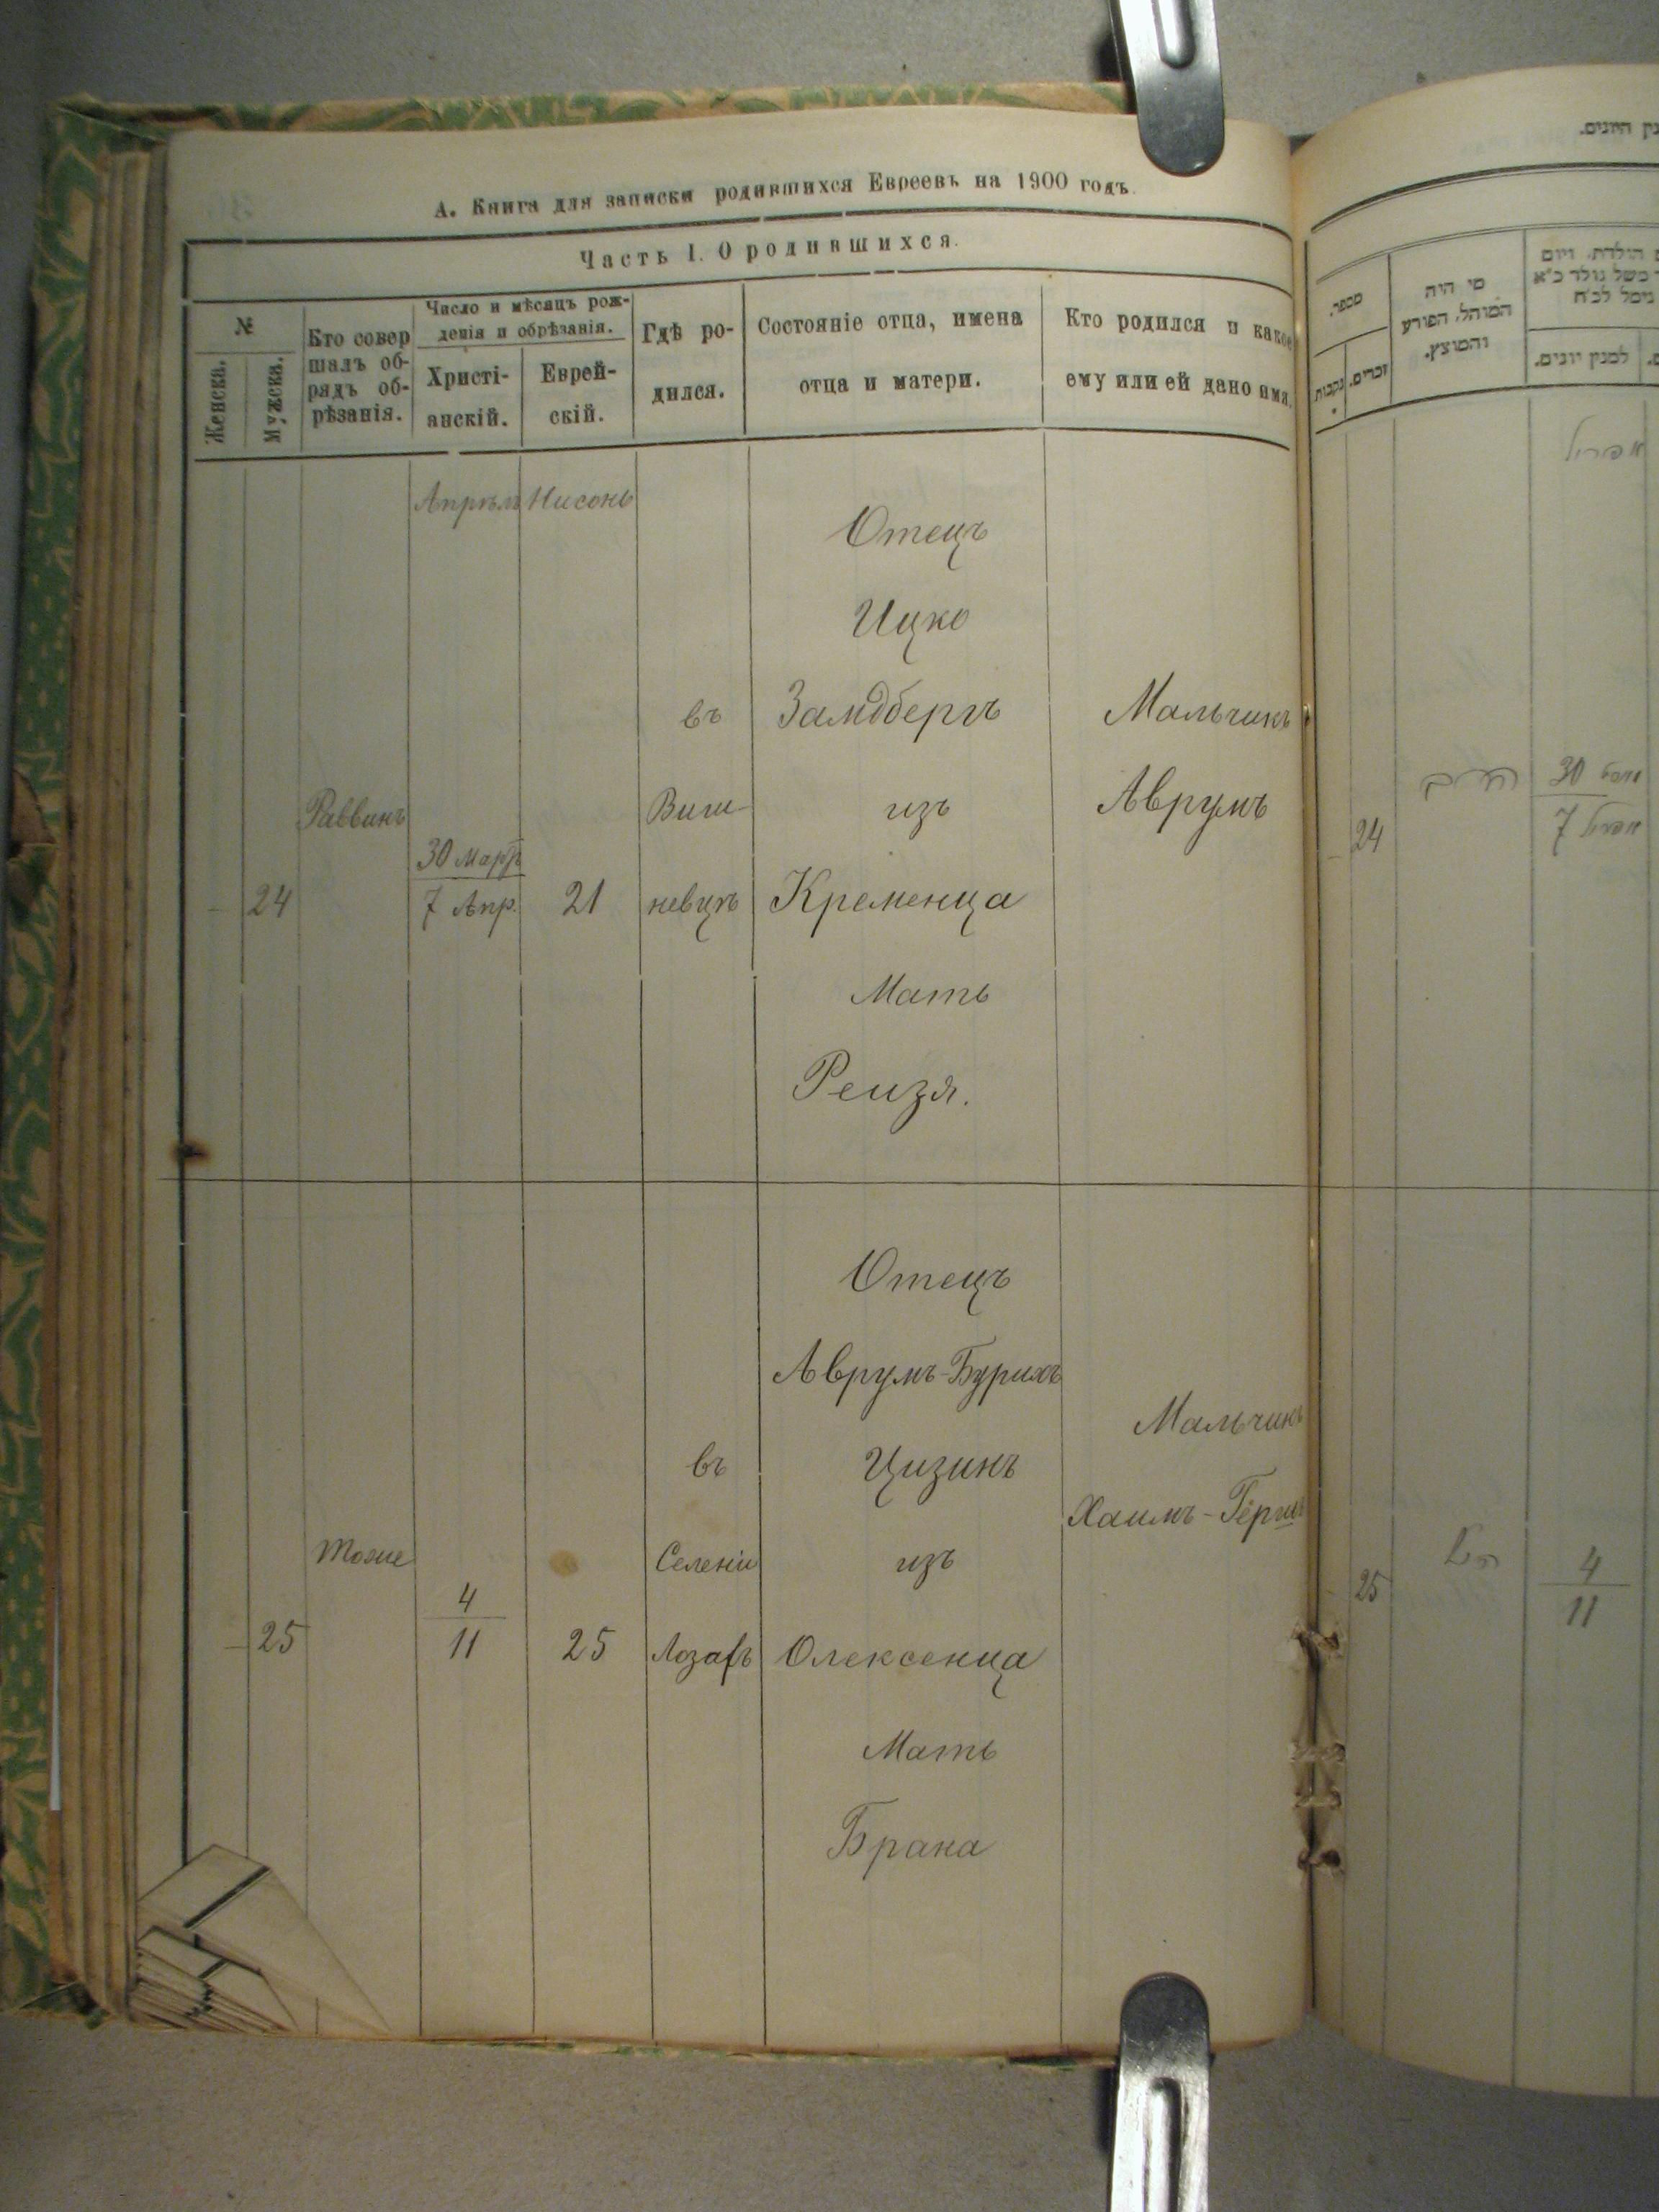 А. Книга для записки родившихся Евреевъ на 1900 годъ.
Часть I. О родившихся.
№
Женска.
Мужска.
Кто совер
шалъ об-
рядъ об-
рѣзанія.
Число и мѣсяцъ рож-
денія и обрѣзанія.
Христі-
анскій.
Еврей-
скій.
Гдѣ ро-
дился.
Состояніе отца, имена
отца и матери.
Кто родился и какое
ему или ей дано имя.
Апрѣль
Нисонь
–
24
Раввинъ
30 Март
7 Апр.
21
въ
Виш-
невцѣ
Отецъ
Ицко
Замдбергъ
изъ
Кременца
Мать
Реизя.
Мальчикъ
Аврумъ
–
25
тоже
4
11
25
въ
Селеніи
Отецъ
Аврумъ-Бурихъ
Цизинъ
изъ
Олексенца
Мать
Брана
Мальчикъ
Хаимъ-Гершъ
מספר.
נקבות
זכרים.
מי היה
המוהל, הפורע
והמוצץ.
למנין יונים.
אפריל
24
30
7 אפריל
25
4
11